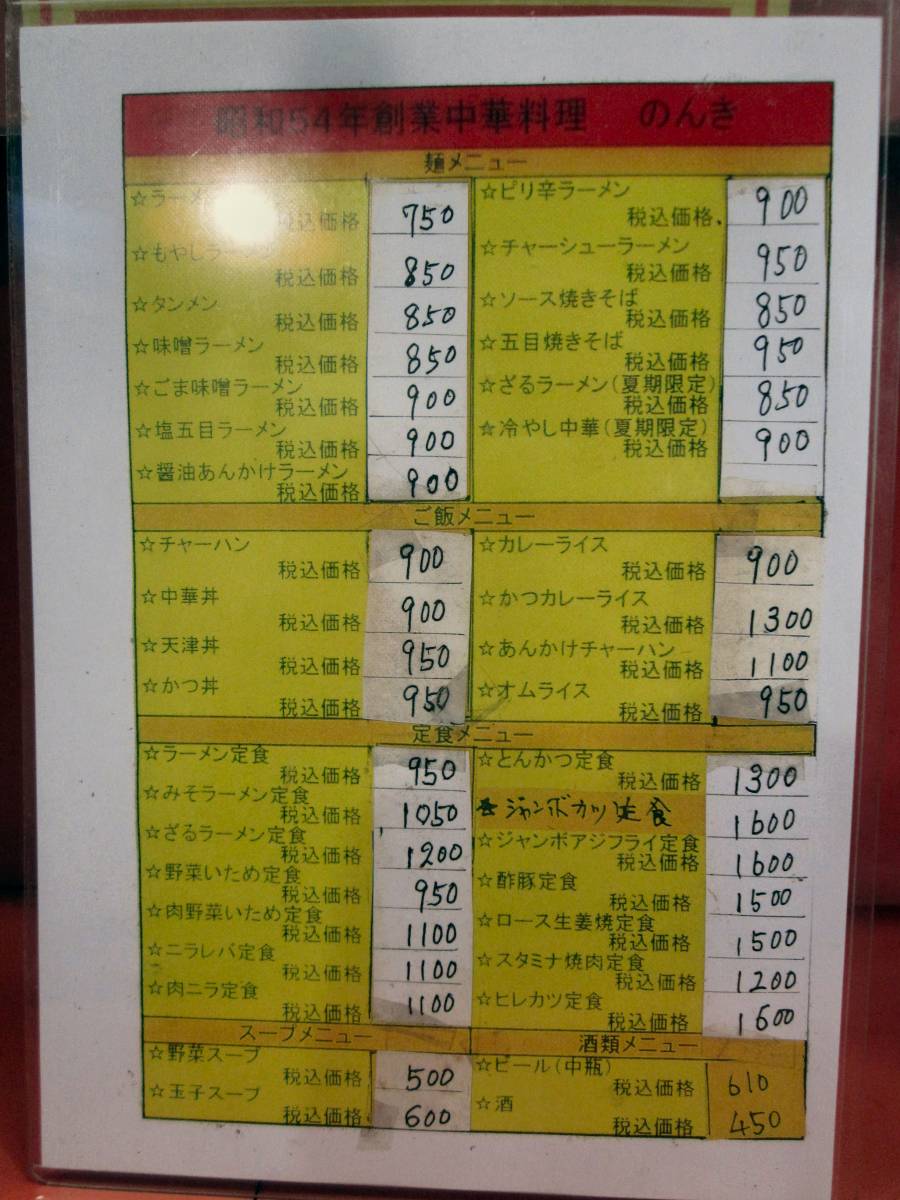 昭和54年創業中華料理 のんき
麺メニュー
☆ラーメン
税込価格 750
☆もやしラーメン
税込価格 850
☆タンメン
税込価格 850
☆味噌ラーメン
税込価格 850
☆ごま味噌ラーメン
税込価格 900
☆塩五目ラーメン
税込価格 900
☆醤油あんかけラーメン
税込価格 900
☆ピリ辛ラーメン
税込価格 900
☆チャーシューラーメン
税込価格 950
☆ソース焼きそば
税込価格 850
☆五目焼きそば
税込価格 950
☆ざるラーメン(夏期限定)
税込価格 850
☆冷やし中華(夏期限定)
税込価格 900
ご飯メニュー
☆チャーハン
税込価格 900
☆中華丼
税込価格 900
☆天津丼
税込価格 950
☆かつ丼
税込価格 950
☆カレーライス
税込価格 900
☆かつカレーライス
税込価格 1300
☆あんかけチャーハン
税込価格 1100
☆オムライス
税込価格 950
定食メニュー
☆ラーメン定食
税込価格 950
☆みそラーメン定食
税込価格 1050
☆ざるラーメン定食
税込価格 1200
☆野菜いため定食
税込価格 950
☆肉野菜いため定食
税込価格 1100
☆ニラレバ定食
税込価格 1100
☆肉ニラ定食
税込価格 1100
☆とんかつ定食
税込価格 1300
★ジャンボカツ定食 1600
☆ジャンボアジフライ定食
税込価格 1600
☆酢豚定食
税込価格 1500
☆ロース生姜焼定食
税込価格 1500
☆スタミナ焼肉定食
税込価格 1200
☆ヒレカツ定食
税込価格 1600
スープメニュー
☆野菜スープ
税込価格 500
☆玉子スープ
税込価格 600
酒類メニュー
☆ビール(中瓶)
税込価格 610
☆酒
税込価格 450